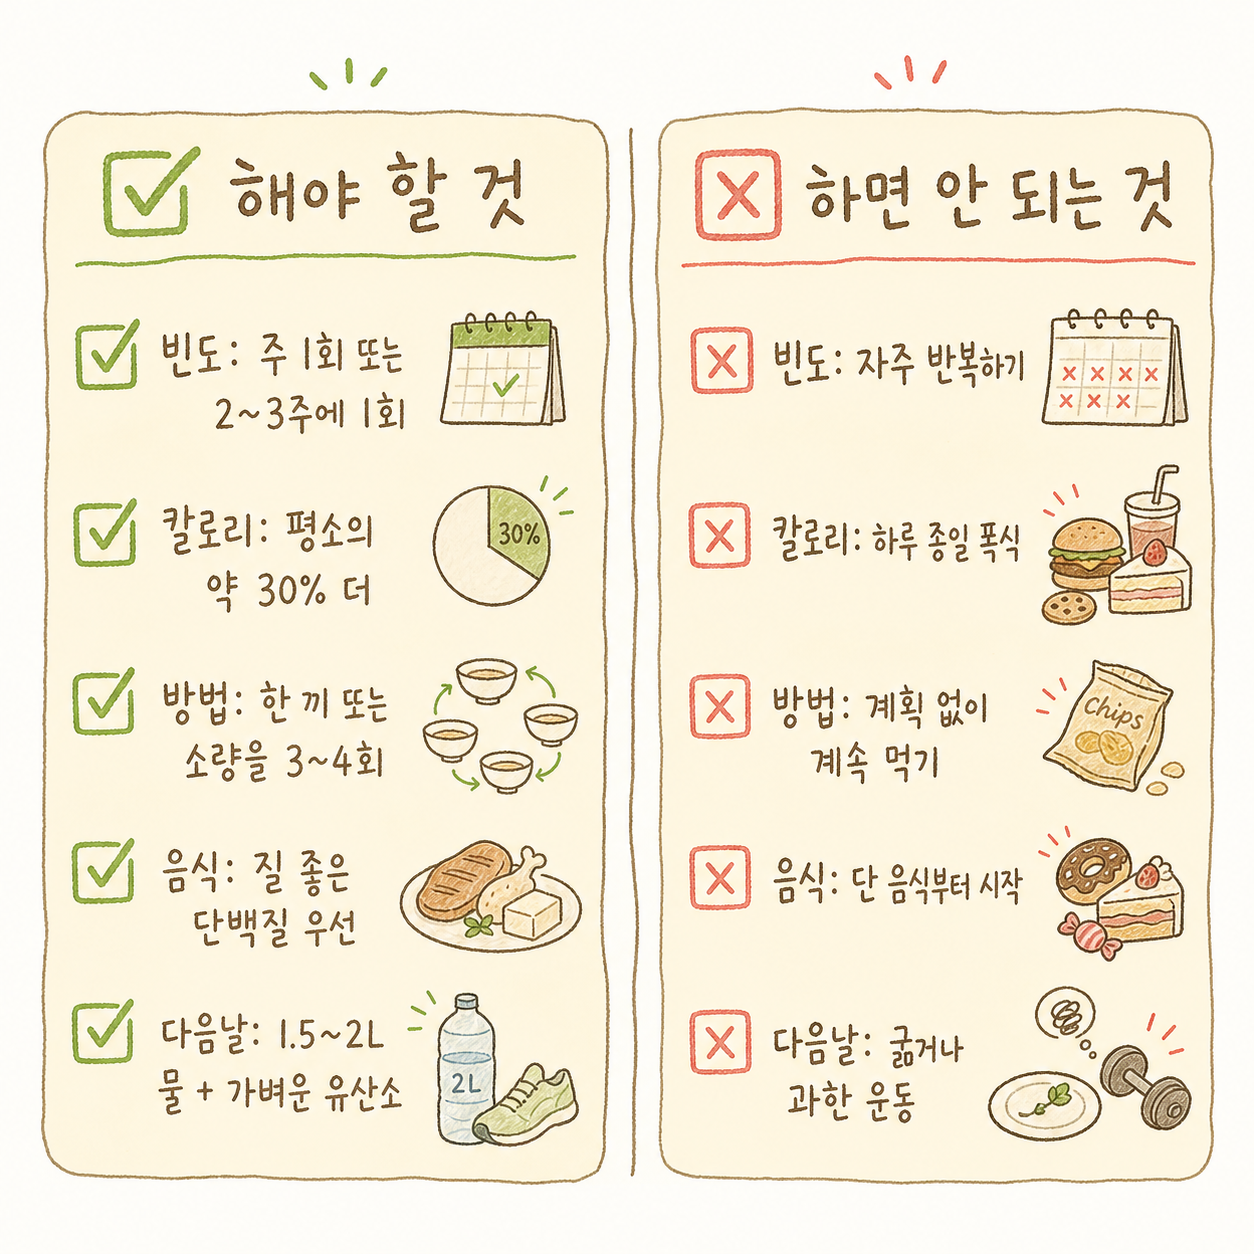 해야 할 것
빈도: 주 1회 또는
2~3주에 1회
칼로리: 평소의
약 30% 더
30%
방법: 한 끼 또는
소량을 3~4회
음식: 질 좋은
단백질 우선
다음날: 1.5~2L
물 + 가벼운 유산소
2L
하면 안 되는 것
빈도: 자주 반복하기
칼로리: 하루 종일 폭식
방법: 계획 없이
계속 먹기
Chips
음식: 단 음식부터 시작
다음날: 굶거나
과한 운동